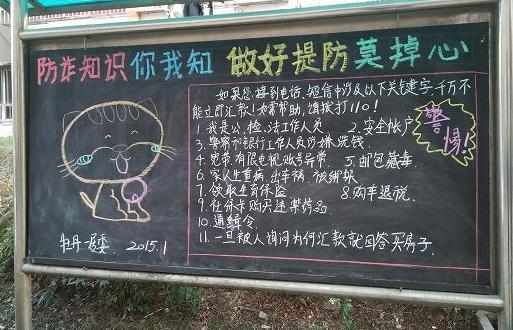 防诈知识你我知 做好提防莫掉心
如果您接到电话、短信中涉及以下关键字,千万不
能立即汇款!如需帮助,请拨打110!
1. 我是公、检、法工作人员 2. 安全帐户
3. 警察和银行工作人员涉嫌洗钱
4. 宽带、有限电视账号异常 5. 邮包藏毒
6. 家人生重病、出车祸、被绑架
7. 领取生育保险 8. 购车退税
9. 社保卡购买迷禁药品
10. 通缉令
11. 一旦被人询问为何汇款就回答买房子
警惕!
牡丹居委 2015.1